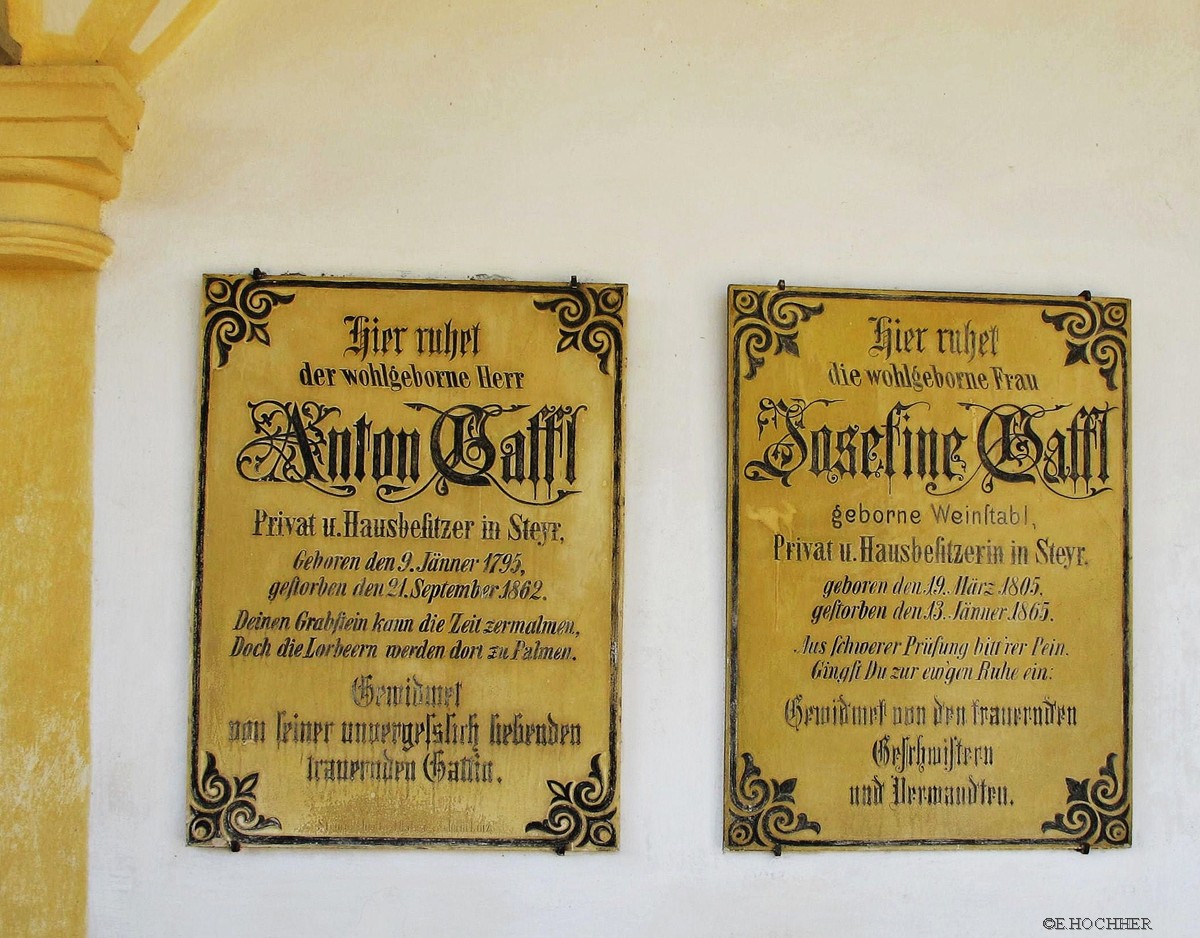 Hier ruhet
der wohlgeborne Herr
Anton Gaffl
Privat u. Hausbeſitzer in Steyr,
Geboren den 9. Jänner 1795,
geſtorben den 21. September 1862.
Deinen Grabſtein kann die Zeit zermalmen,
Doch die Lorbeern werden dort zu Palmen.
Gewidmet
von ſeiner unvergeſslich liebenden
trauernden Gattin.
Hier ruhet
die wohlgeborne Frau
Josefine Gaffl
geborne Weinſtabl,
Privat u. Hausbeſitzerin in Steyr.
geboren den 19. März 1805.
geſtorben den 13. Jänner 1865.
Aus ſchwerer Prüfung bitt'rer Pein.
Gingſt Du zur ew'gen Ruhe ein:
Gewidmet von den trauernden
Geſchwiſtern
und Verwandten.
©E.HOCHHER